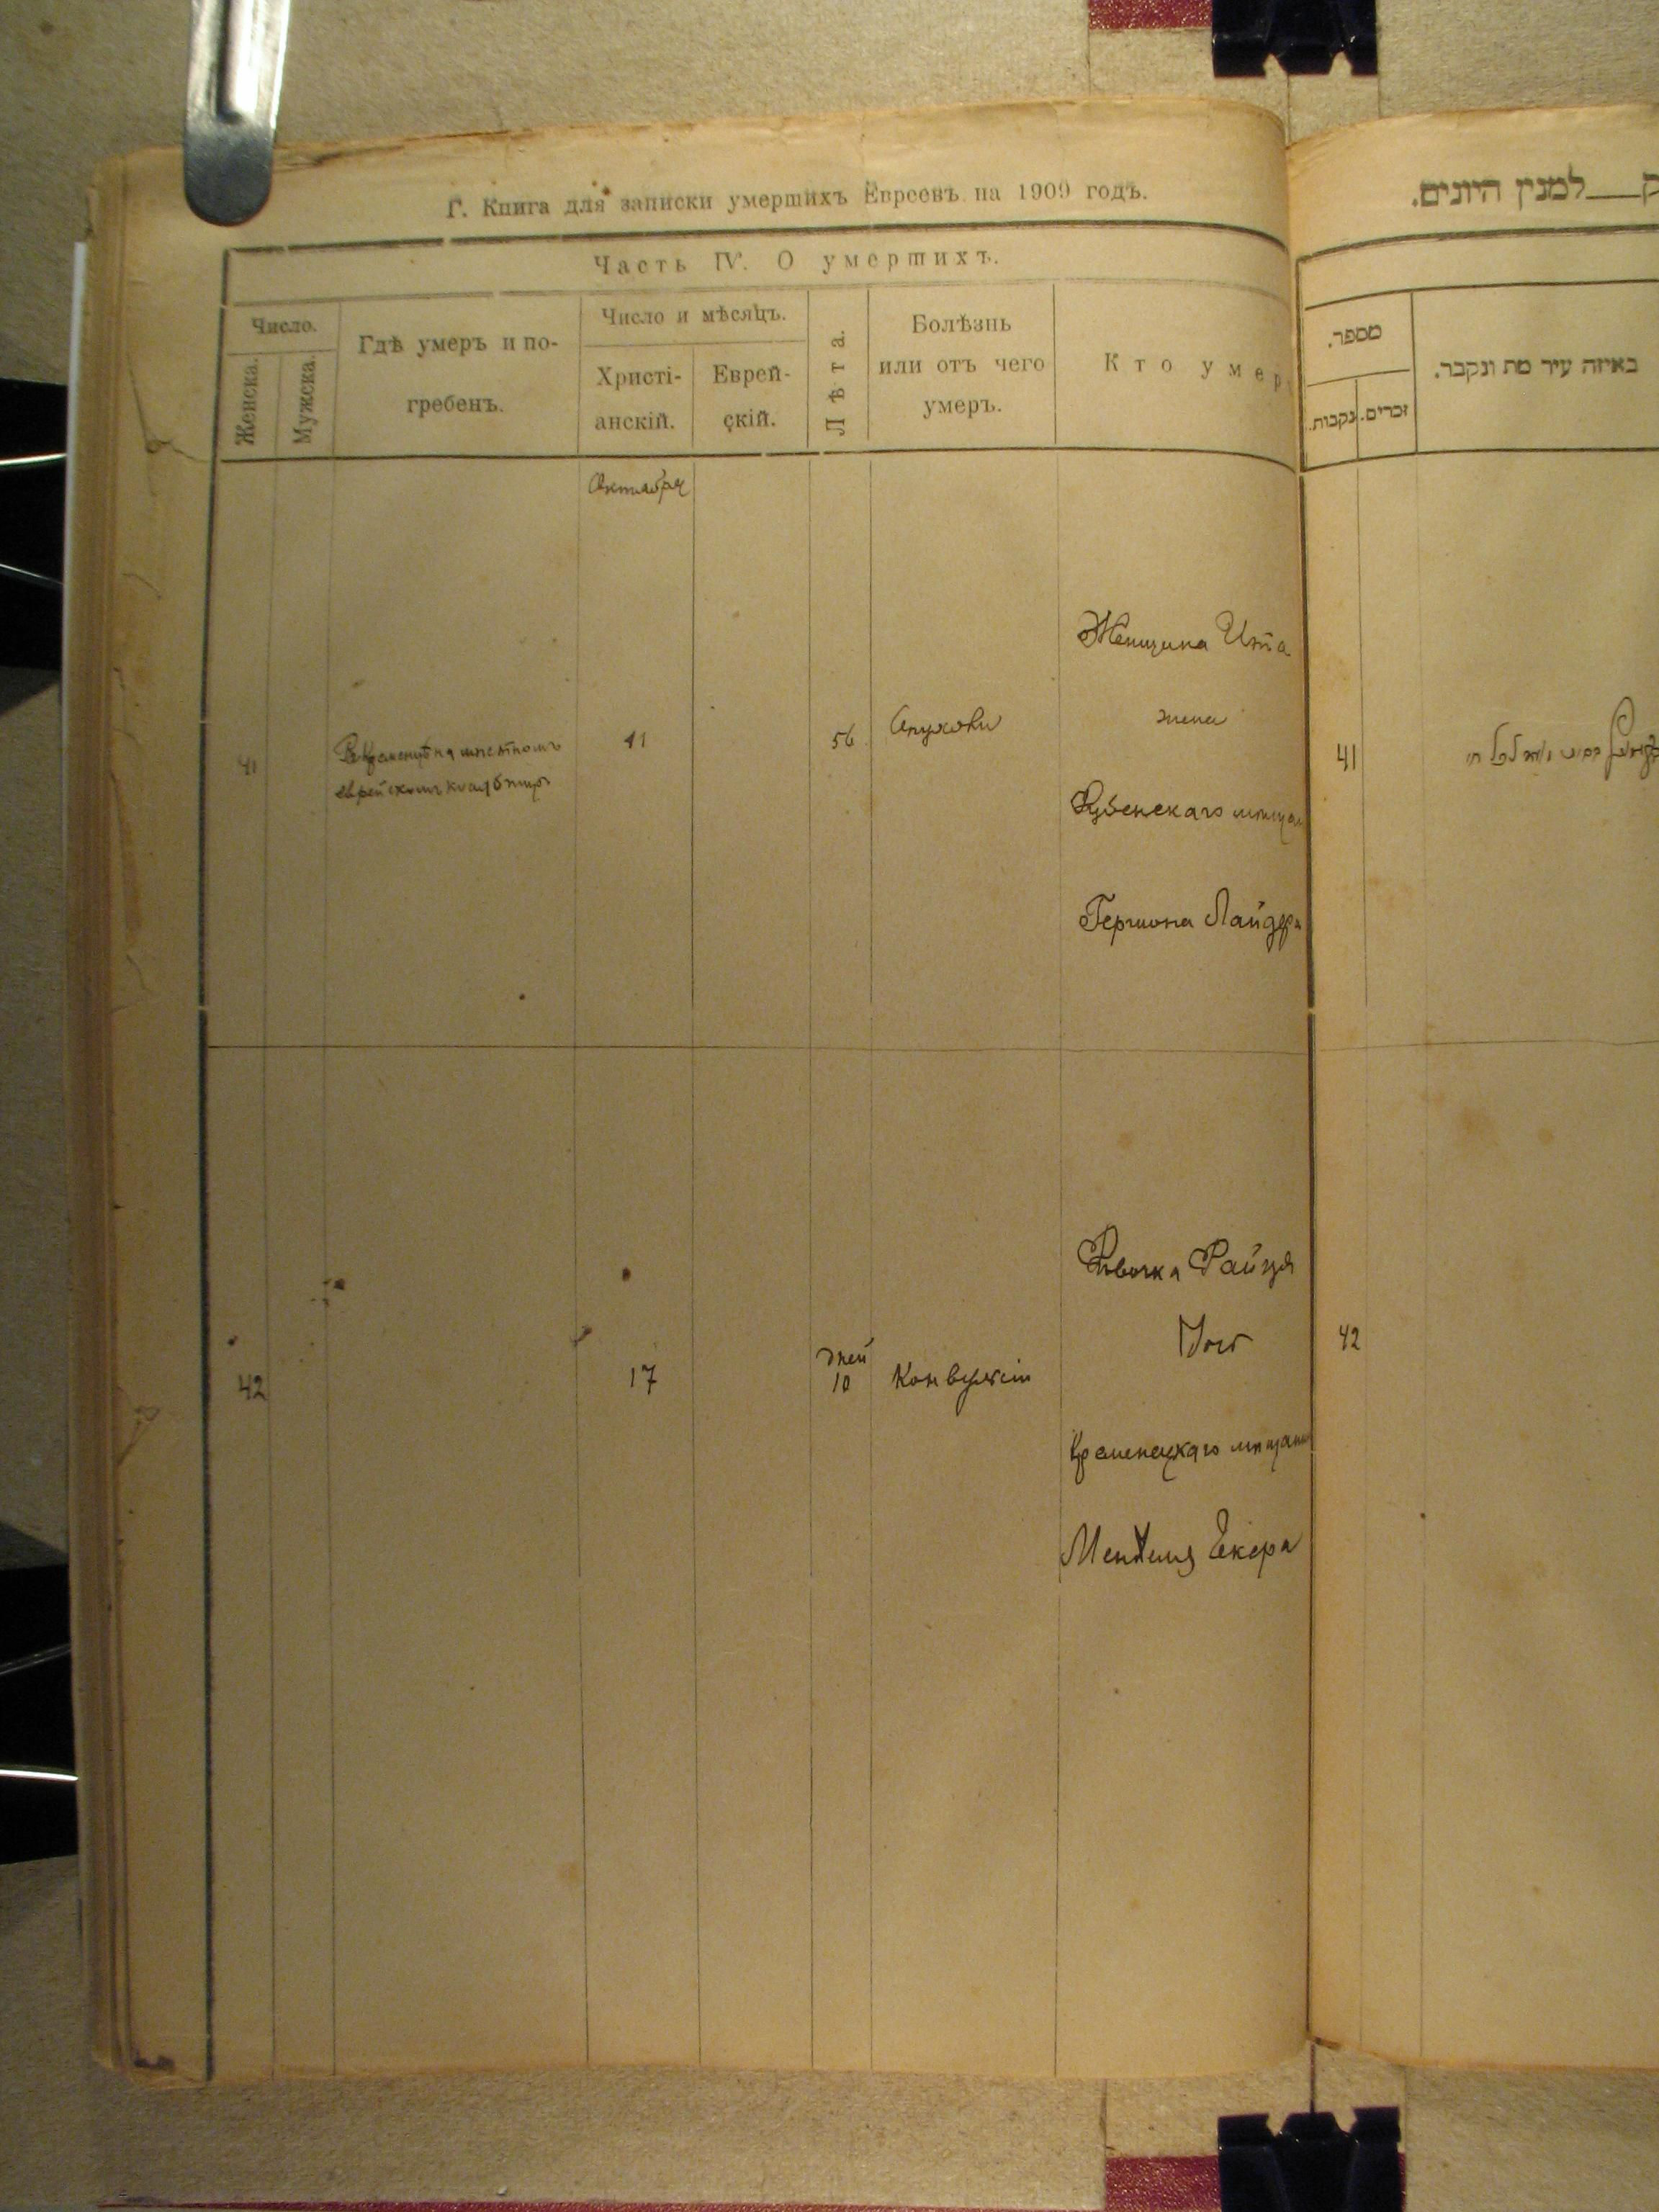 Г. Книга для записки умершихъ Евреевъ на 1909 годъ.
Часть IV. О умершихъ.
Число.
Женска.
Мужска.
Гдѣ умеръ и по-
гребенъ.
Число и мѣсяцъ.
Христі-
анскій.
Еврей-
скій.
Лѣта.
Болѣзнь
или отъ чего
умеръ.
Кто умер
Октября
41
еврейскомъ
11
56
Опухоли
Женщина Ита
жена
Дубенскаго мѣщан
Гершона Лайдер
42
17
дней
10
Конвульсіи
Дѣвочка Файга
дочь
Кременецкаго мѣщани
Менделя Екера
למנין היונים.
מספר.
נקבות.
זכרים.
באיזה עיר מת ונקבר.
41
42